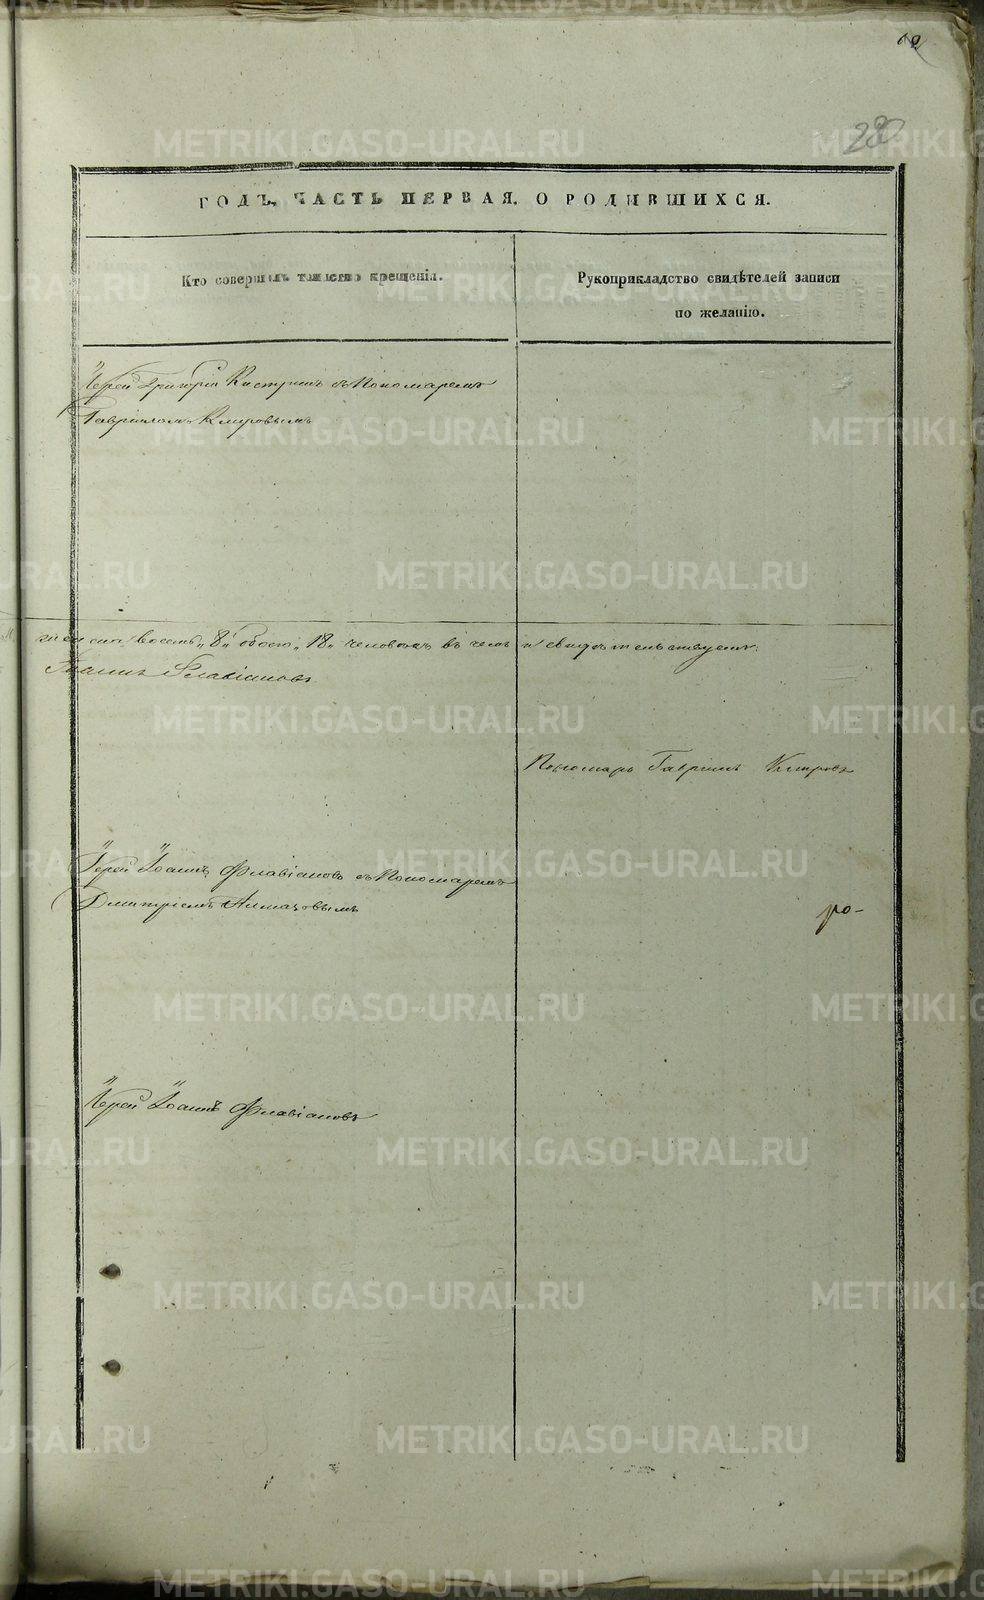 20
ГОДЪ, ЧАСТЬ ПЕРВАЯ, О РОДИВШИХСЯ.
Кто совершалъ таинство крещенія.
Рукоприкладство свидѣтелей записи
по желанію.
Іерей Григорій Кистринъ съ Пономаремъ
Гавріиломъ
восемь „8„ обоего „18„ человѣкъ въ чемъ и свидѣтельствуемъ:
Іоаннъ Флавіановъ
Пономарь Гавріилъ
Іерей Іоаннъ Флавіановъ съ Пономаремъ
Дмитріемъ Алмазовымъ
ро-
Іерей Іоаннъ Флавіановъ
METRIKI.GASO-URAL.RU